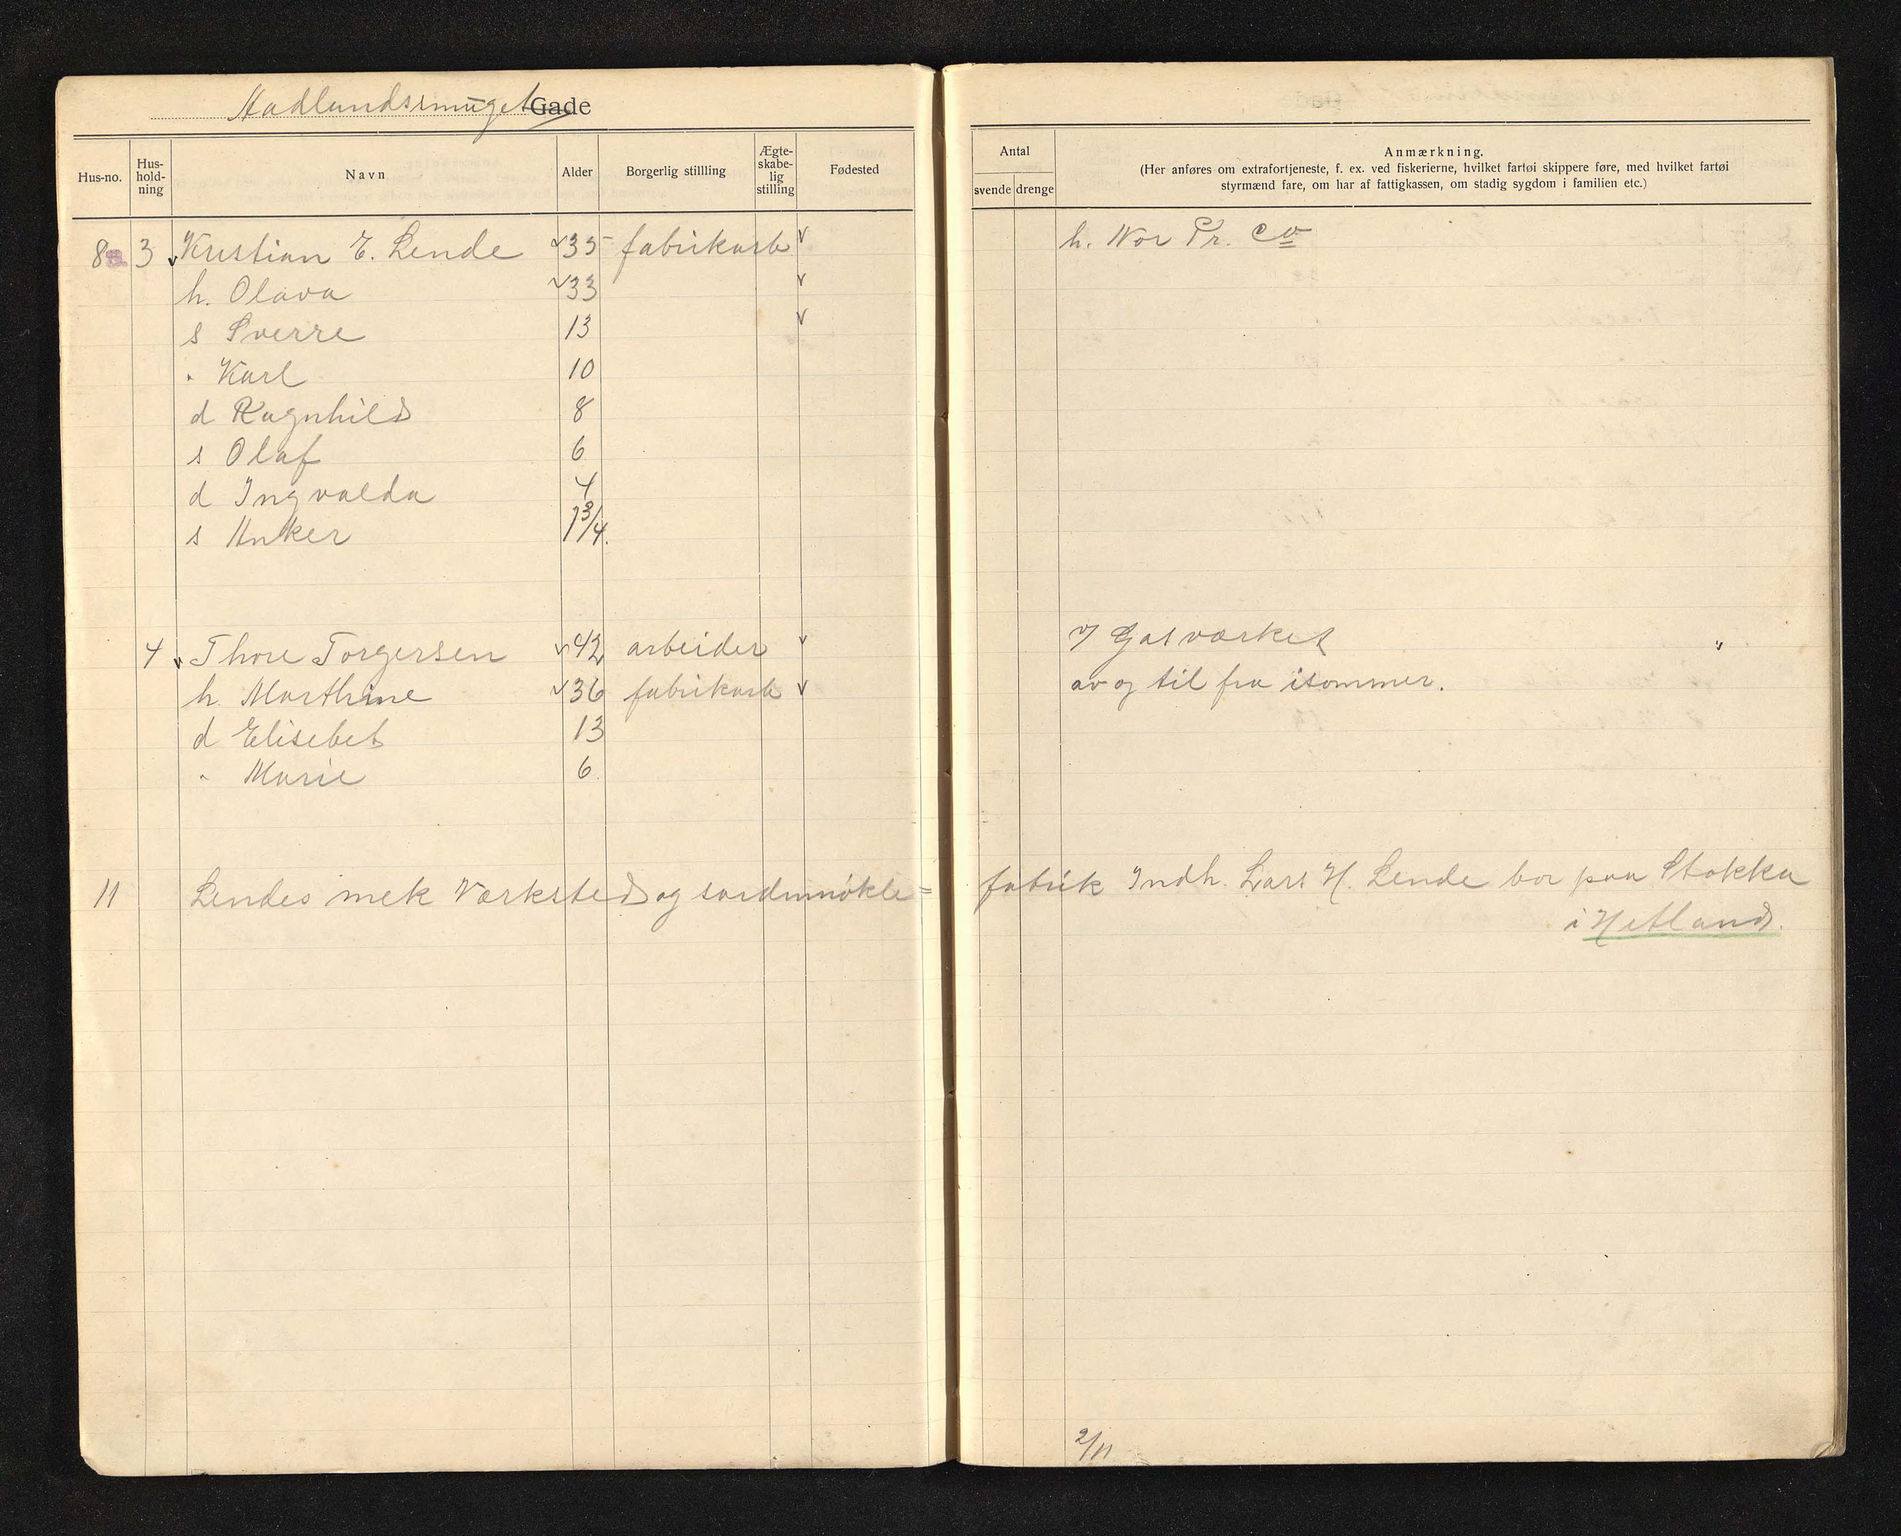 Hadlandssmuget Gade
Hus-no. Hus-hold-ning Navn Alder Borgerlig stillling Ægte-skabe-lig stilling Fødested
8a 3 Kristian E. Lende 35 fabrikarb
h. Olava 33
s Sverre 13
" Karl 10
d Ragnhild 8
s Olaf 6
d Ingvalda 4
s Anker 1 3/4.
4 Thore Torgersen 42 arbeider
h. Marthine 36 fabrikarb
d Elisebet 13
" Marie 6
11 Lendes mek Værksted og sardinnøkle=
Antal Anmærkning.
svende drenge (Her anføres om extrafortjeneste, f. ex. ved fiskerierne, hvilket fartøi skippere føre, med hvilket fartøi
styrmænd fare, om har af fattigkassen, om stadig sygdom i familien etc.)
h. Nor Pr. Co
v/ Gasværket "
av og til fra isommer.
fabrik Indh. Lars H. Lende bor paa Stokka
i Hetland.
2/11